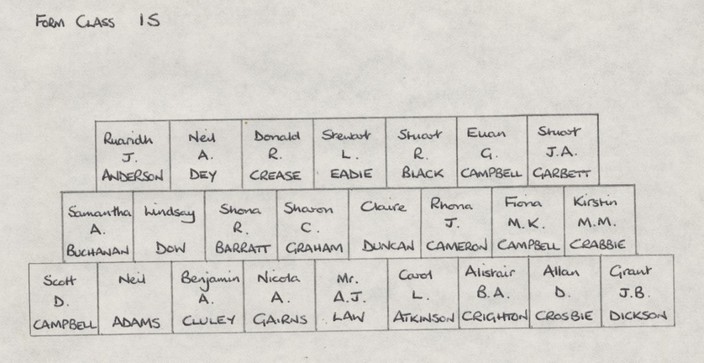 FORM CLASS 1S
Ruaridh Neil Donald Stewart Stuart Euan Stuart
J. A. R. L. R. G. J.A.
ANDERSON DEY CREASE EADIE BLACK CAMPBELL GARBETT
Samantha Lindsay Shona Sharon Claire Rhona Fiona Kirstin
A. R. C. J. M.K. M.M.
BUCHANAN DOW BARRATT GRAHAM DUNCAN CAMERON CAMPBELL CRABBIE
Scott Neil Benjamin Nicola Mr. Carol Alistair Allan Grant
D. A. A. A.J. L. B.A. D. J.B.
CAMPBELL ADAMS CLULEY GAIRNS LAW ATKINSON CRIGHTON CROSBIE DICKSON